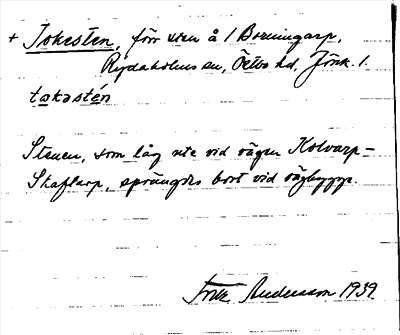 + Tokesten, förr sten å 1 Borningarp,
Rydaholms sn, Östbo hd, Jönk. l.
takastén
Stenen, som låg ute vid vägen Kolvarp-
Skaftarp, sprängdes bort vid vägbygge.
Andersson 1939.